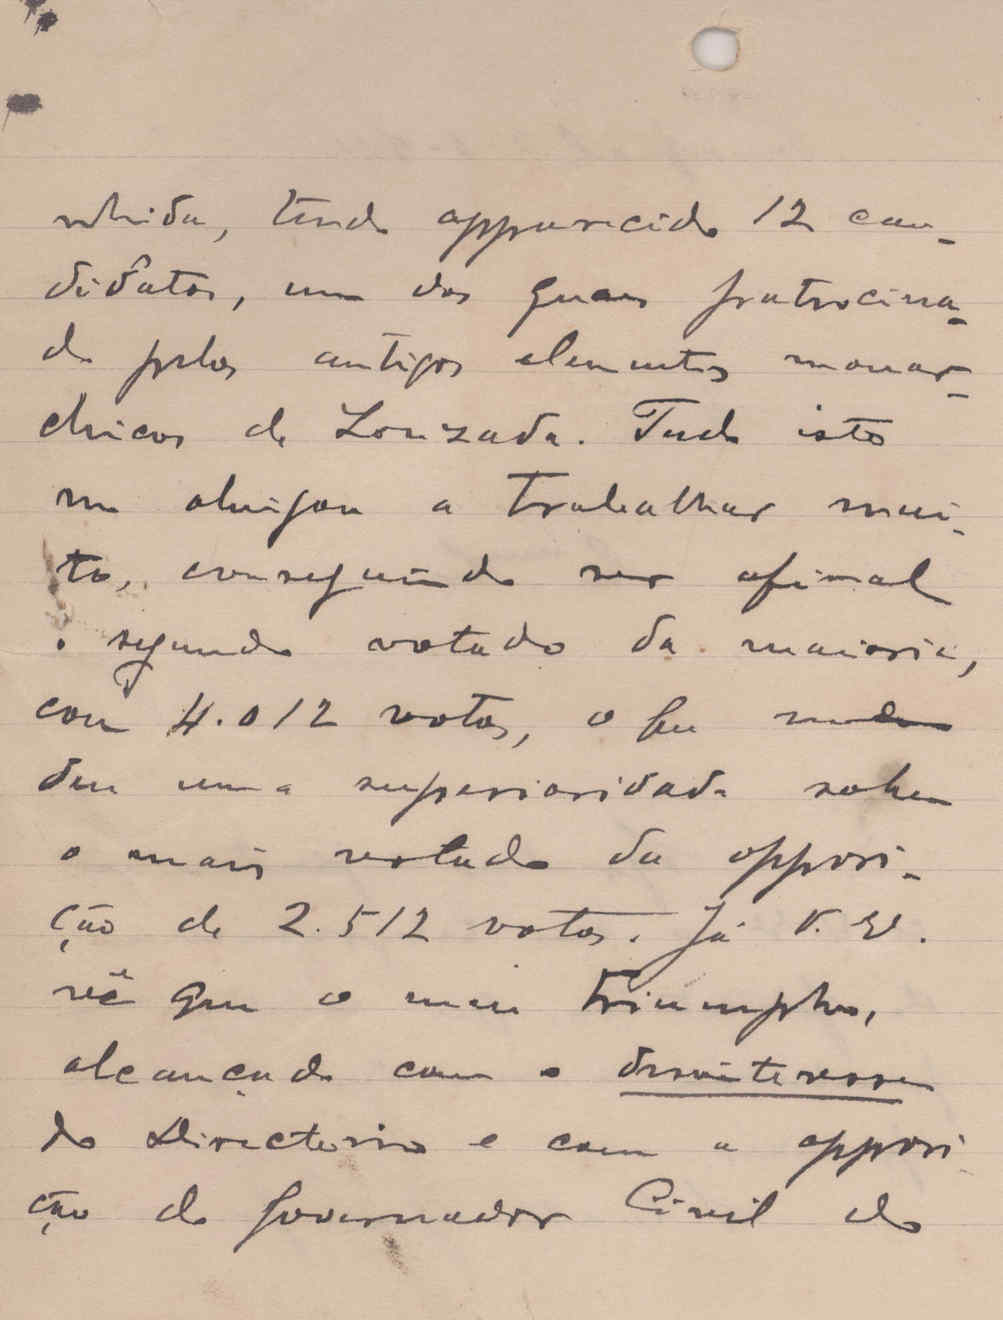 nhida, tendo apparecido 12 can-
didatos, um dos quaes patrocina-
do pelos antigos elementos monar-
chicos de Louzada. Tudo isto
me obrigou a trabalhar mui-
to, conseguindo ser afinal
o segundo votado da maioria,
com 4.012 votos, o que me
deu uma superioridade sobre
o mais votado da opposi-
ção de 2.512 votos. Já V. Ex.
vê que o meu triumpho,
alcançado com o desinteresse
do Directorio e com a opposi
ção do Governador Civil do